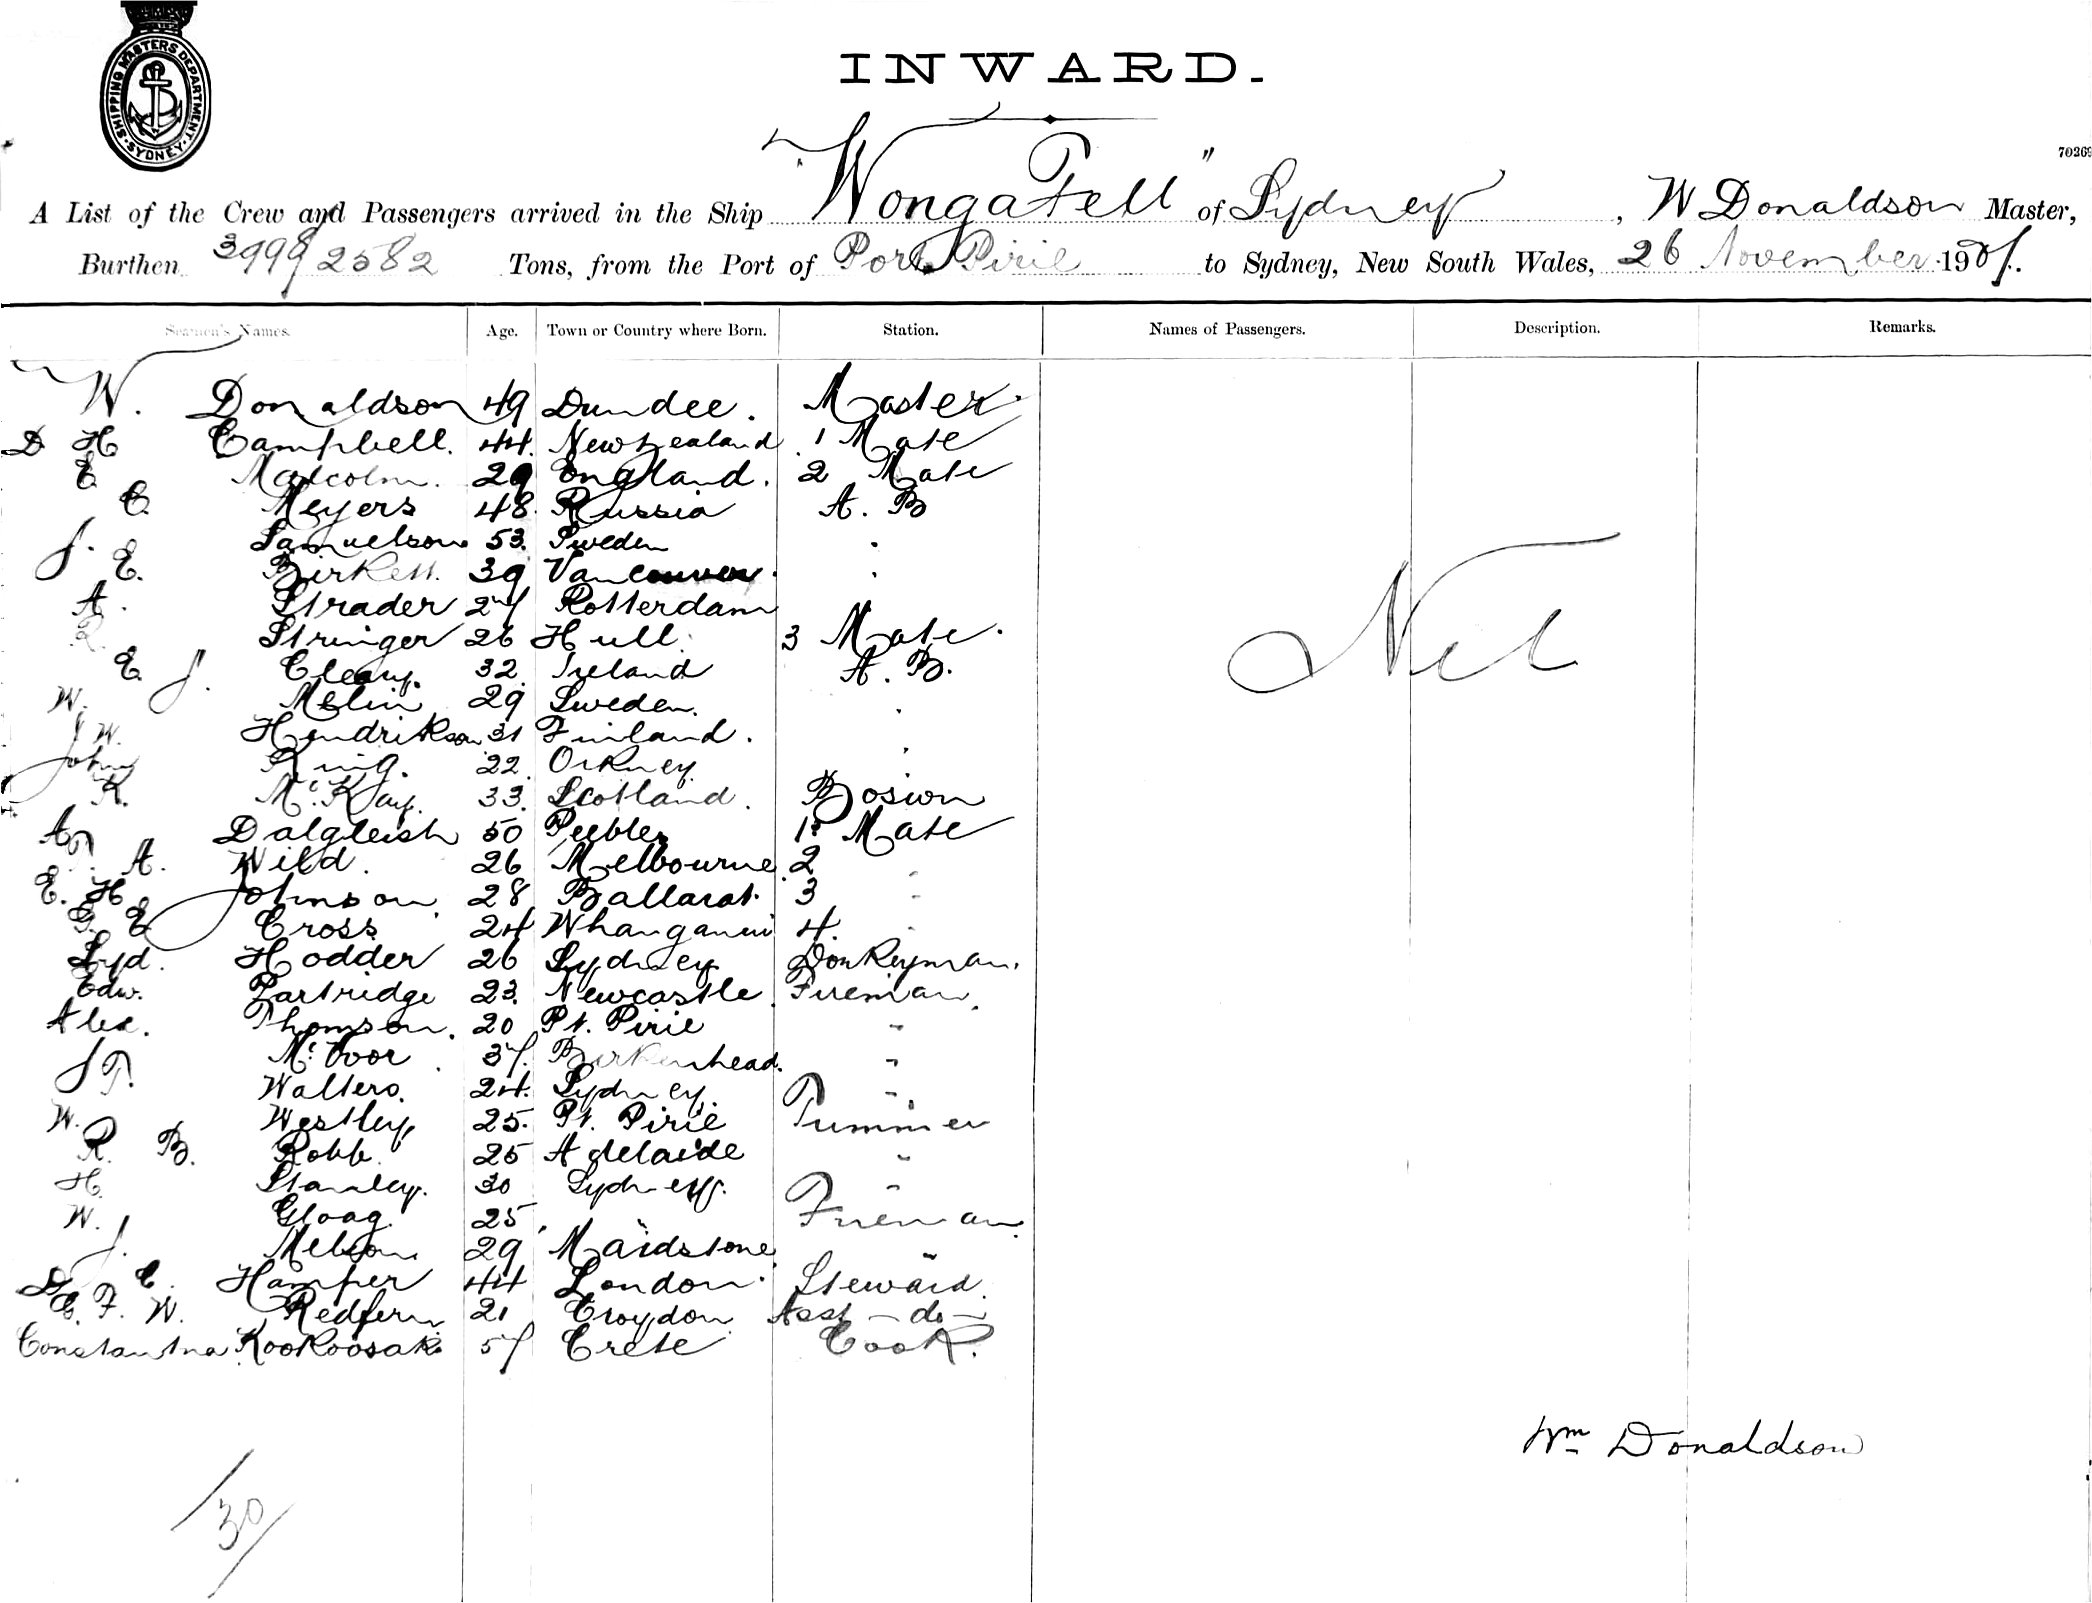 SHIPPING MASTERS DEPARTMENT · SYDNEY ·
INWARD.
70269
A List of the Crew and Passengers arrived in the Ship "Wonga Fell" of Sydney, W Donaldson Master,
Burthen 3999/2582 Tons, from the Port of Port Pirie to Sydney, New South Wales, 26 November 19
Seamen's Names. Age. Town or Country where Born. Station. Names of Passengers. Description. Remarks.
W. Donaldson 49 Dundee. Master.
D H Campbell. 44. New Zealand 1 Mate
E Malcolm. 29 England. 2 Mate
C. Meyers 48. Russia A. B
J. Samuelson 53. Sweden "
E. Birkett. 39 Vancouver. "
A. Strader 27 Rotterdam
R. Stringer 26 Hull. 3 Mate.
E. J. Cleary. 32. Ireland A. B.
W. Melin 29 Sweden. "
J W. Hendrikson 31 Finland. "
John King. 22. Orkney. "
K. McKay. 33. Scotland. Bosiun
A. Dalgleish 50 Peebles 1st Mate
A. Wild. 26 Melbourne. 2 "
E. H. Johnson. 28 Ballarat. 3 "
G. E Cross 24 Whanganui 4. "
Syd. Hodder 26 Sydney Donkeyman.
Edw. Partridge 23. Newcastle. Fireman.
Alex. Thomson. 20 Pt. Pirie "
J McIvor 37. Birkenhead. "
T. Walters. 24. Sydney. "
W. Westley 25. Pt. Pirie Trimmer
R. B. Robb. 25 Adelaide "
H. Stanley. 30 Sydney. "
W. Gloag. 25 " Fireman.
J. Nelson. 29 Maidstone "
D. C. Hamper 44 London. Steward.
C. F. W. Redfern 21 Croydon Asst - do -
Constantina Kookoosak 57 Crete Cook.
Nil
Wm Donaldson
30